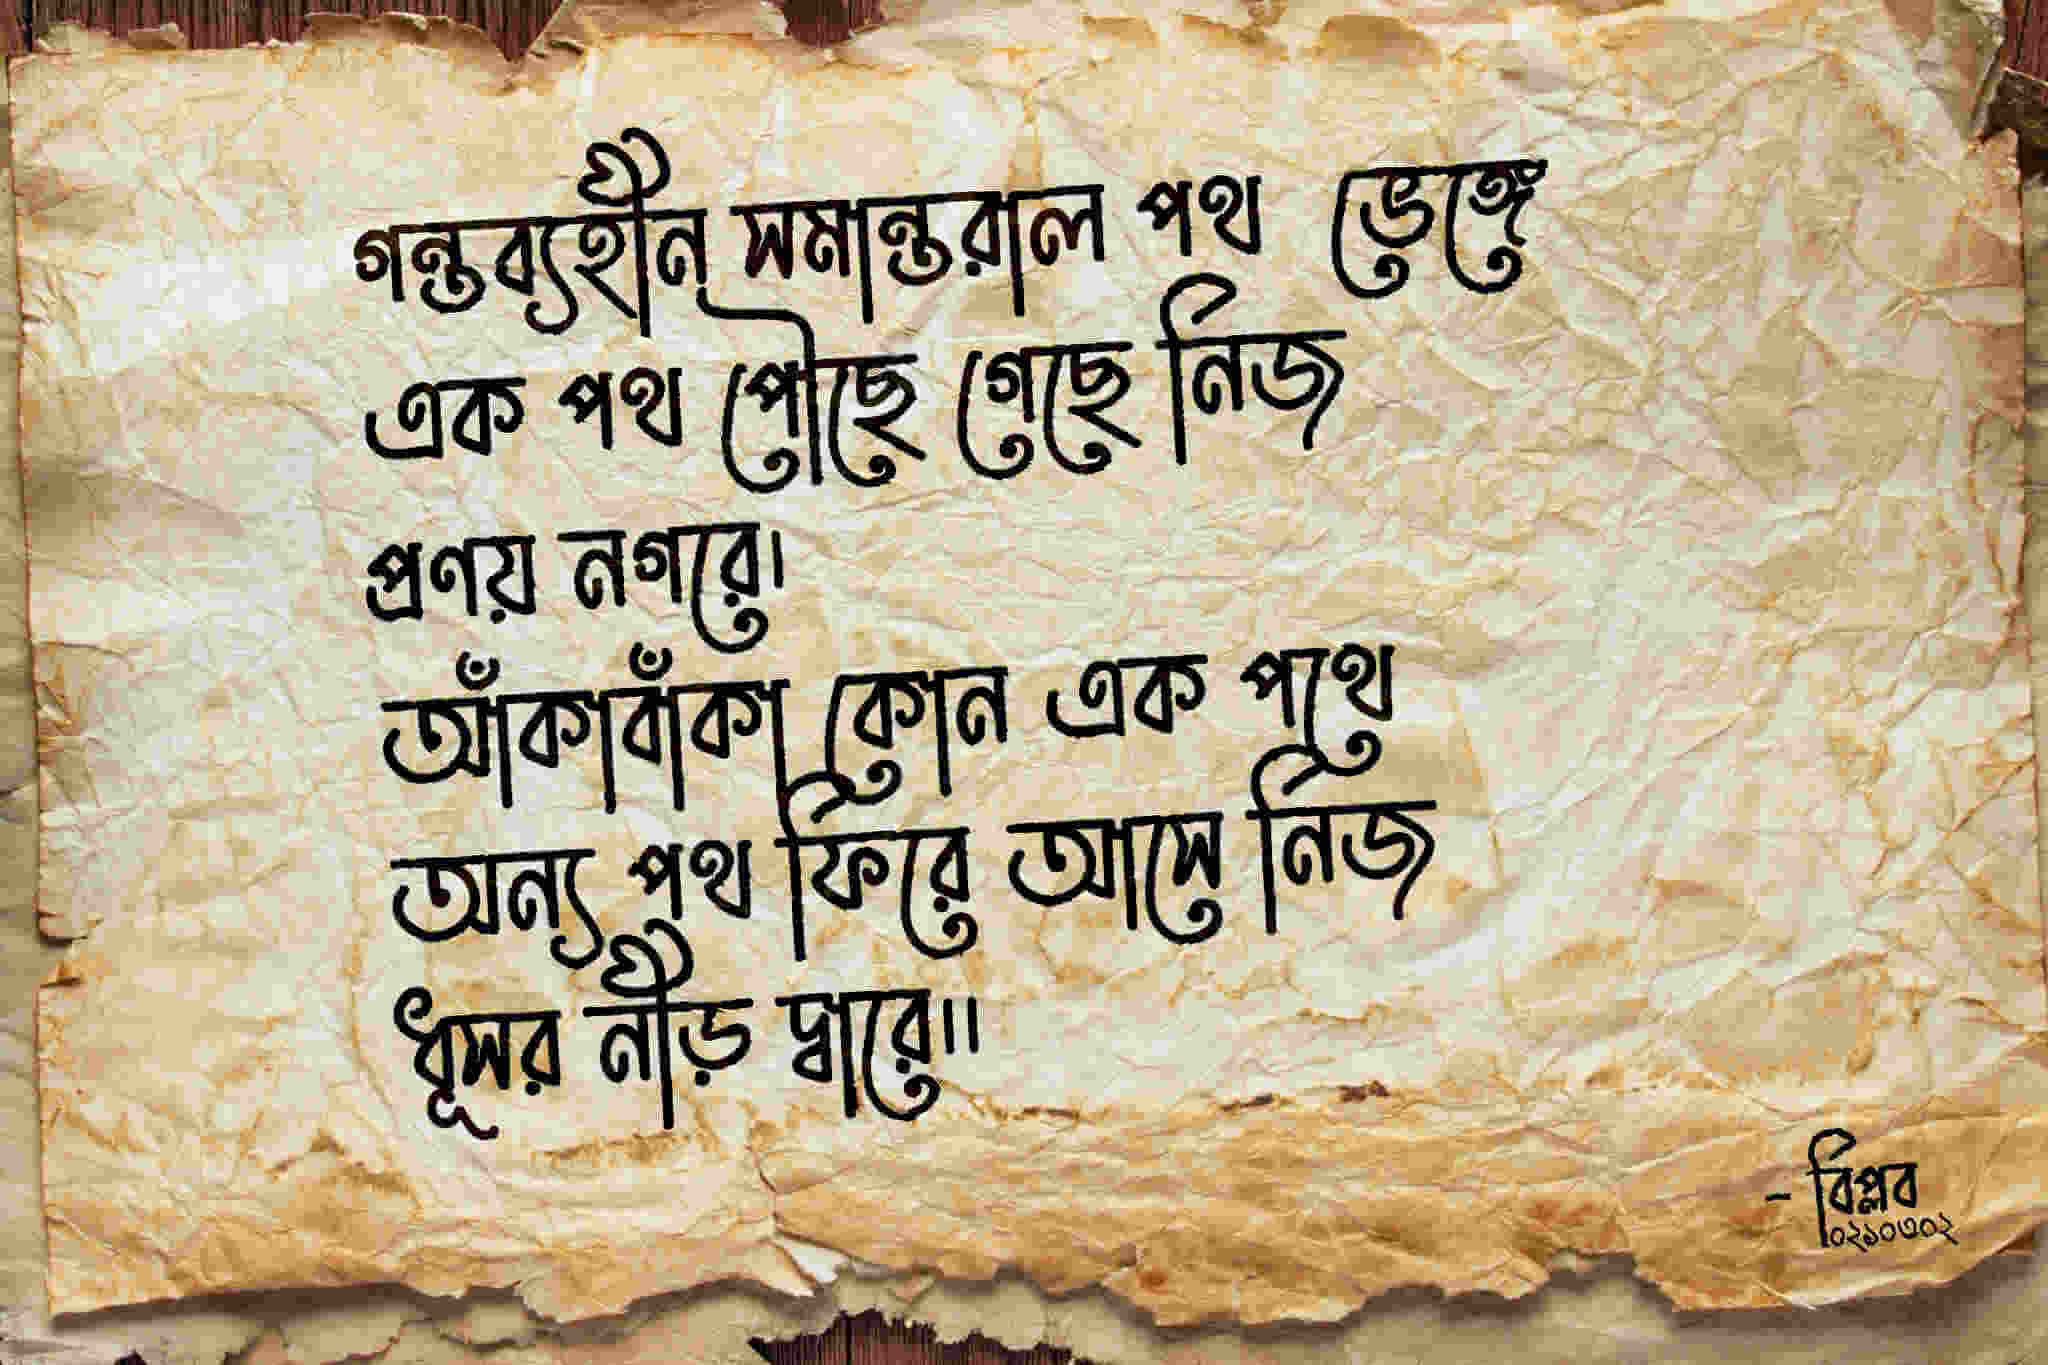 গন্তব্যহীন সমান্তরাল পথ ভেঙ্গে
এক পথ পৌছে গেছে নিজ
প্রণয় নগরে।
আঁকাবাঁকা কোন এক পথে
অন্য পথ ফিরে আসে নিজ
ধূসর নীড় দ্বারে॥
- বিপ্লব
০২১০৩০২